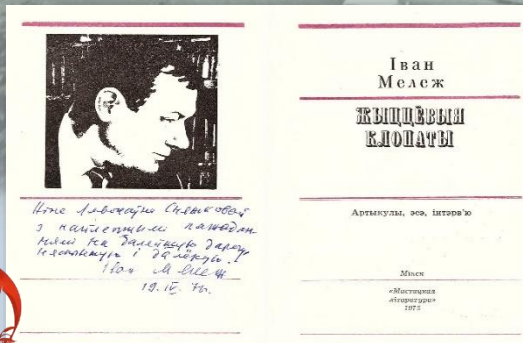 з найлепшымі пажадан-
нямі на далейшую дарогу
і далёкую!
Іван Мележ
19.IV.76.
Іван
Мележ
ЖЫЦЦЁВЫЯ
КЛОПАТЫ
Артыкулы, эсэ, інтэрв'ю
Мінск
«Мастацкая
літаратура»
1975